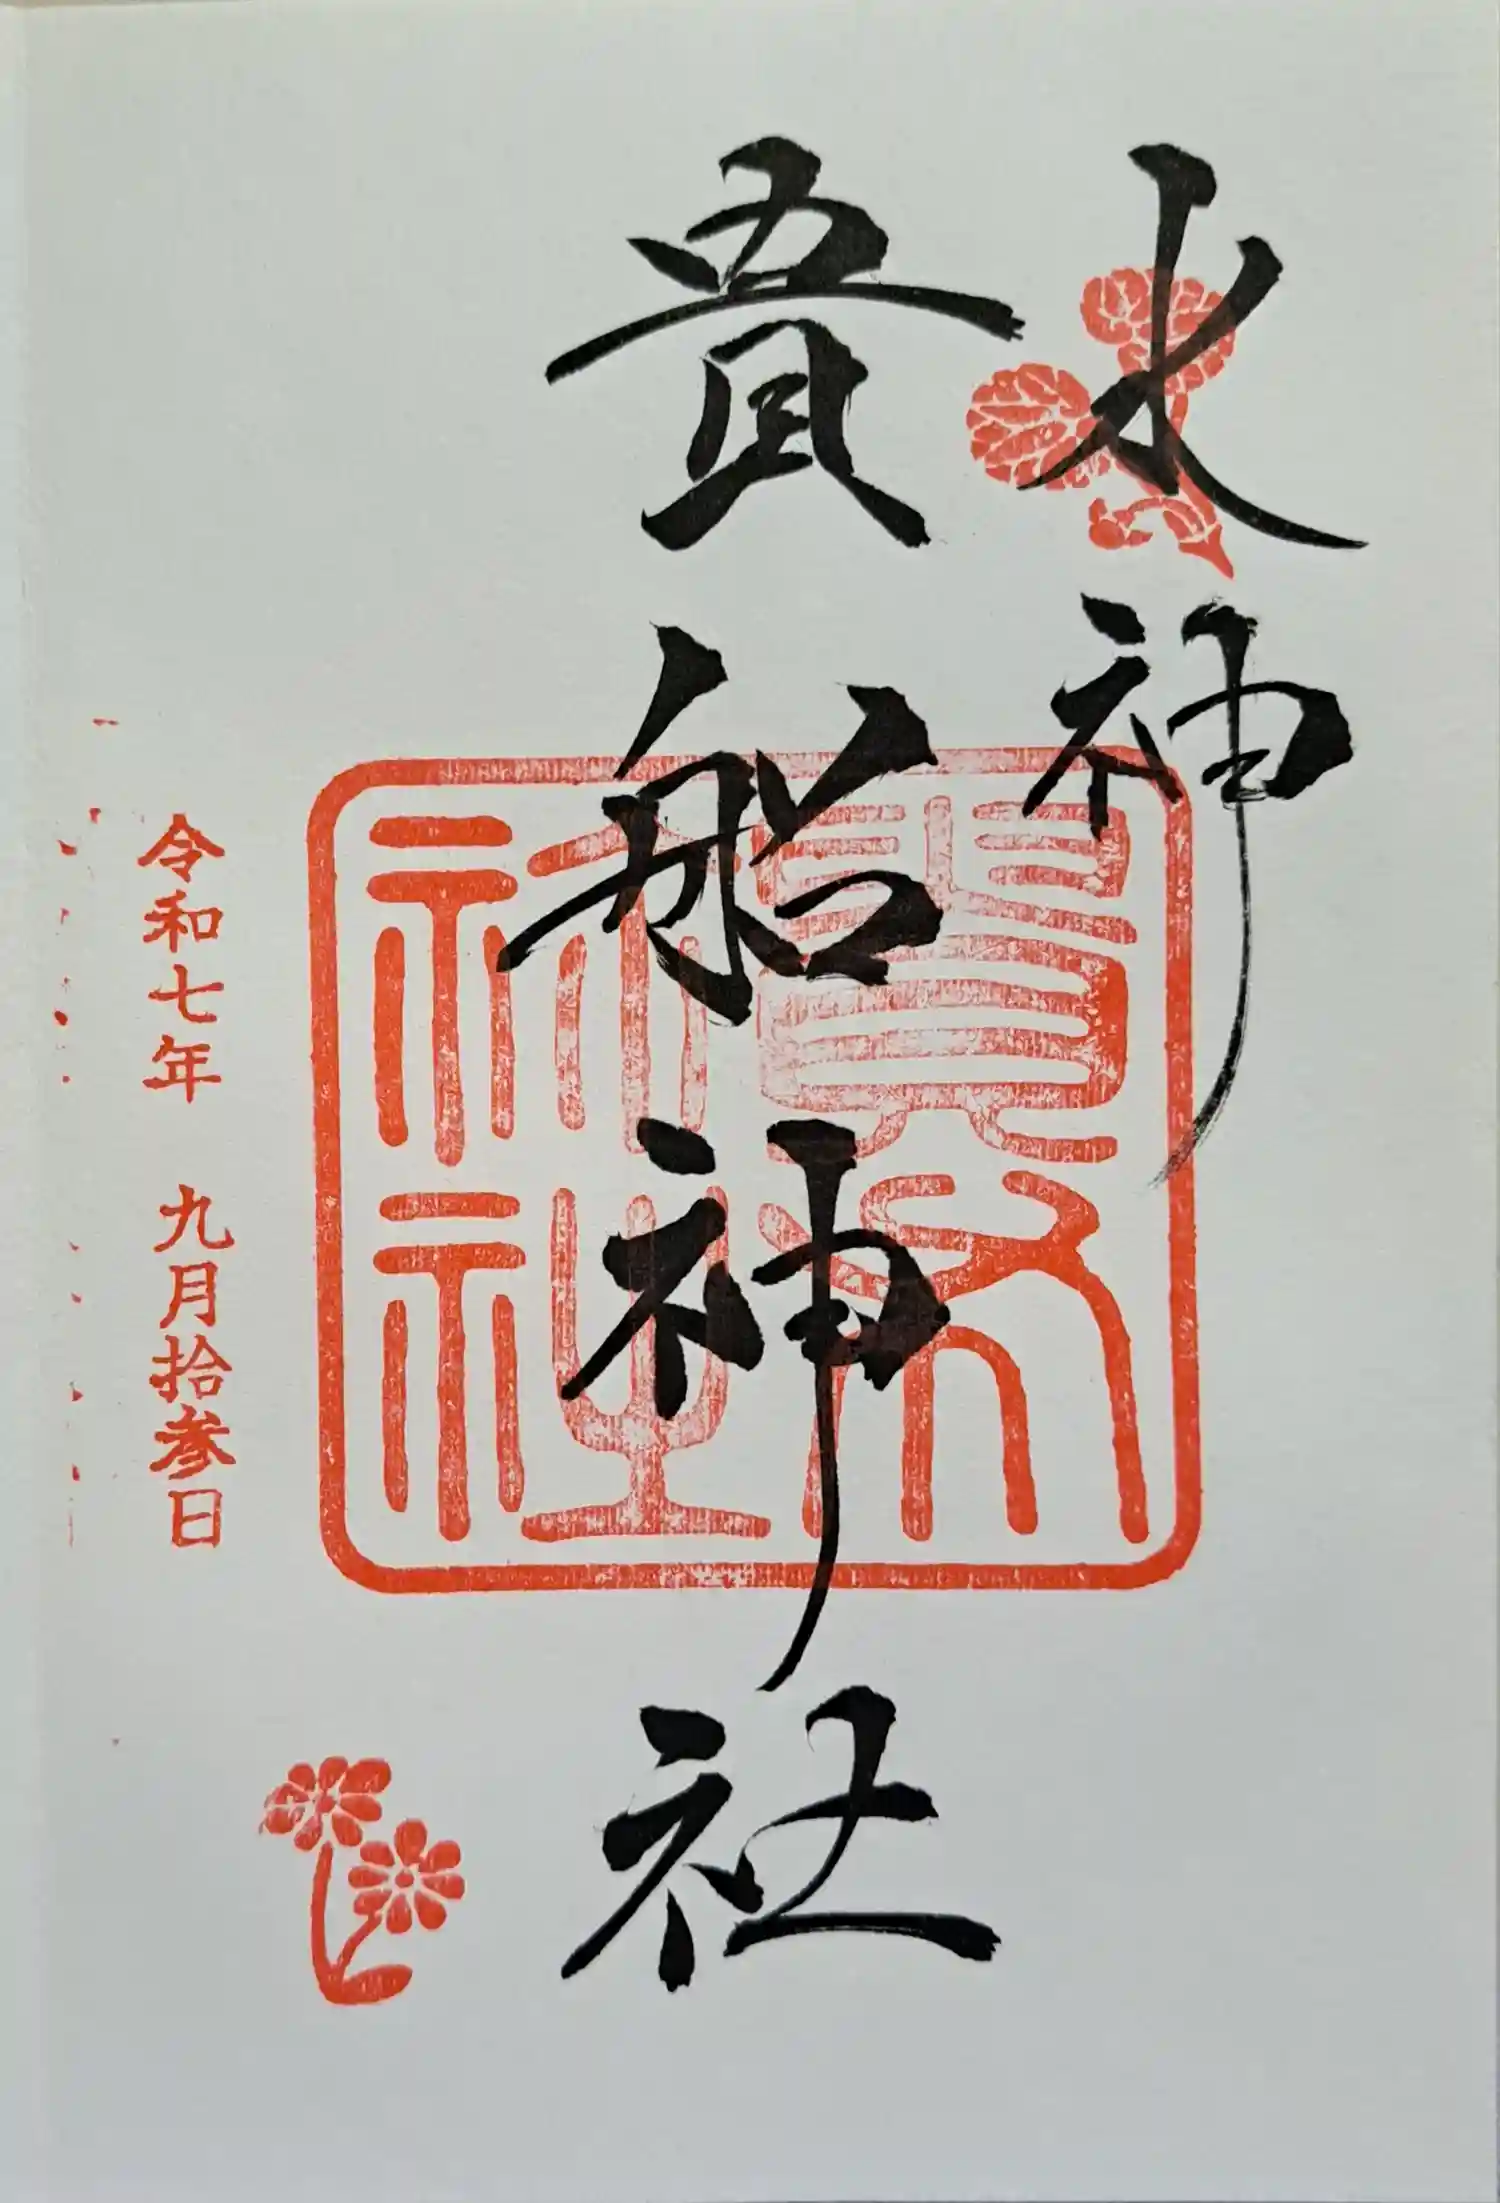 水神
貴船神社
貴布禰社
令和七年 九月拾参日